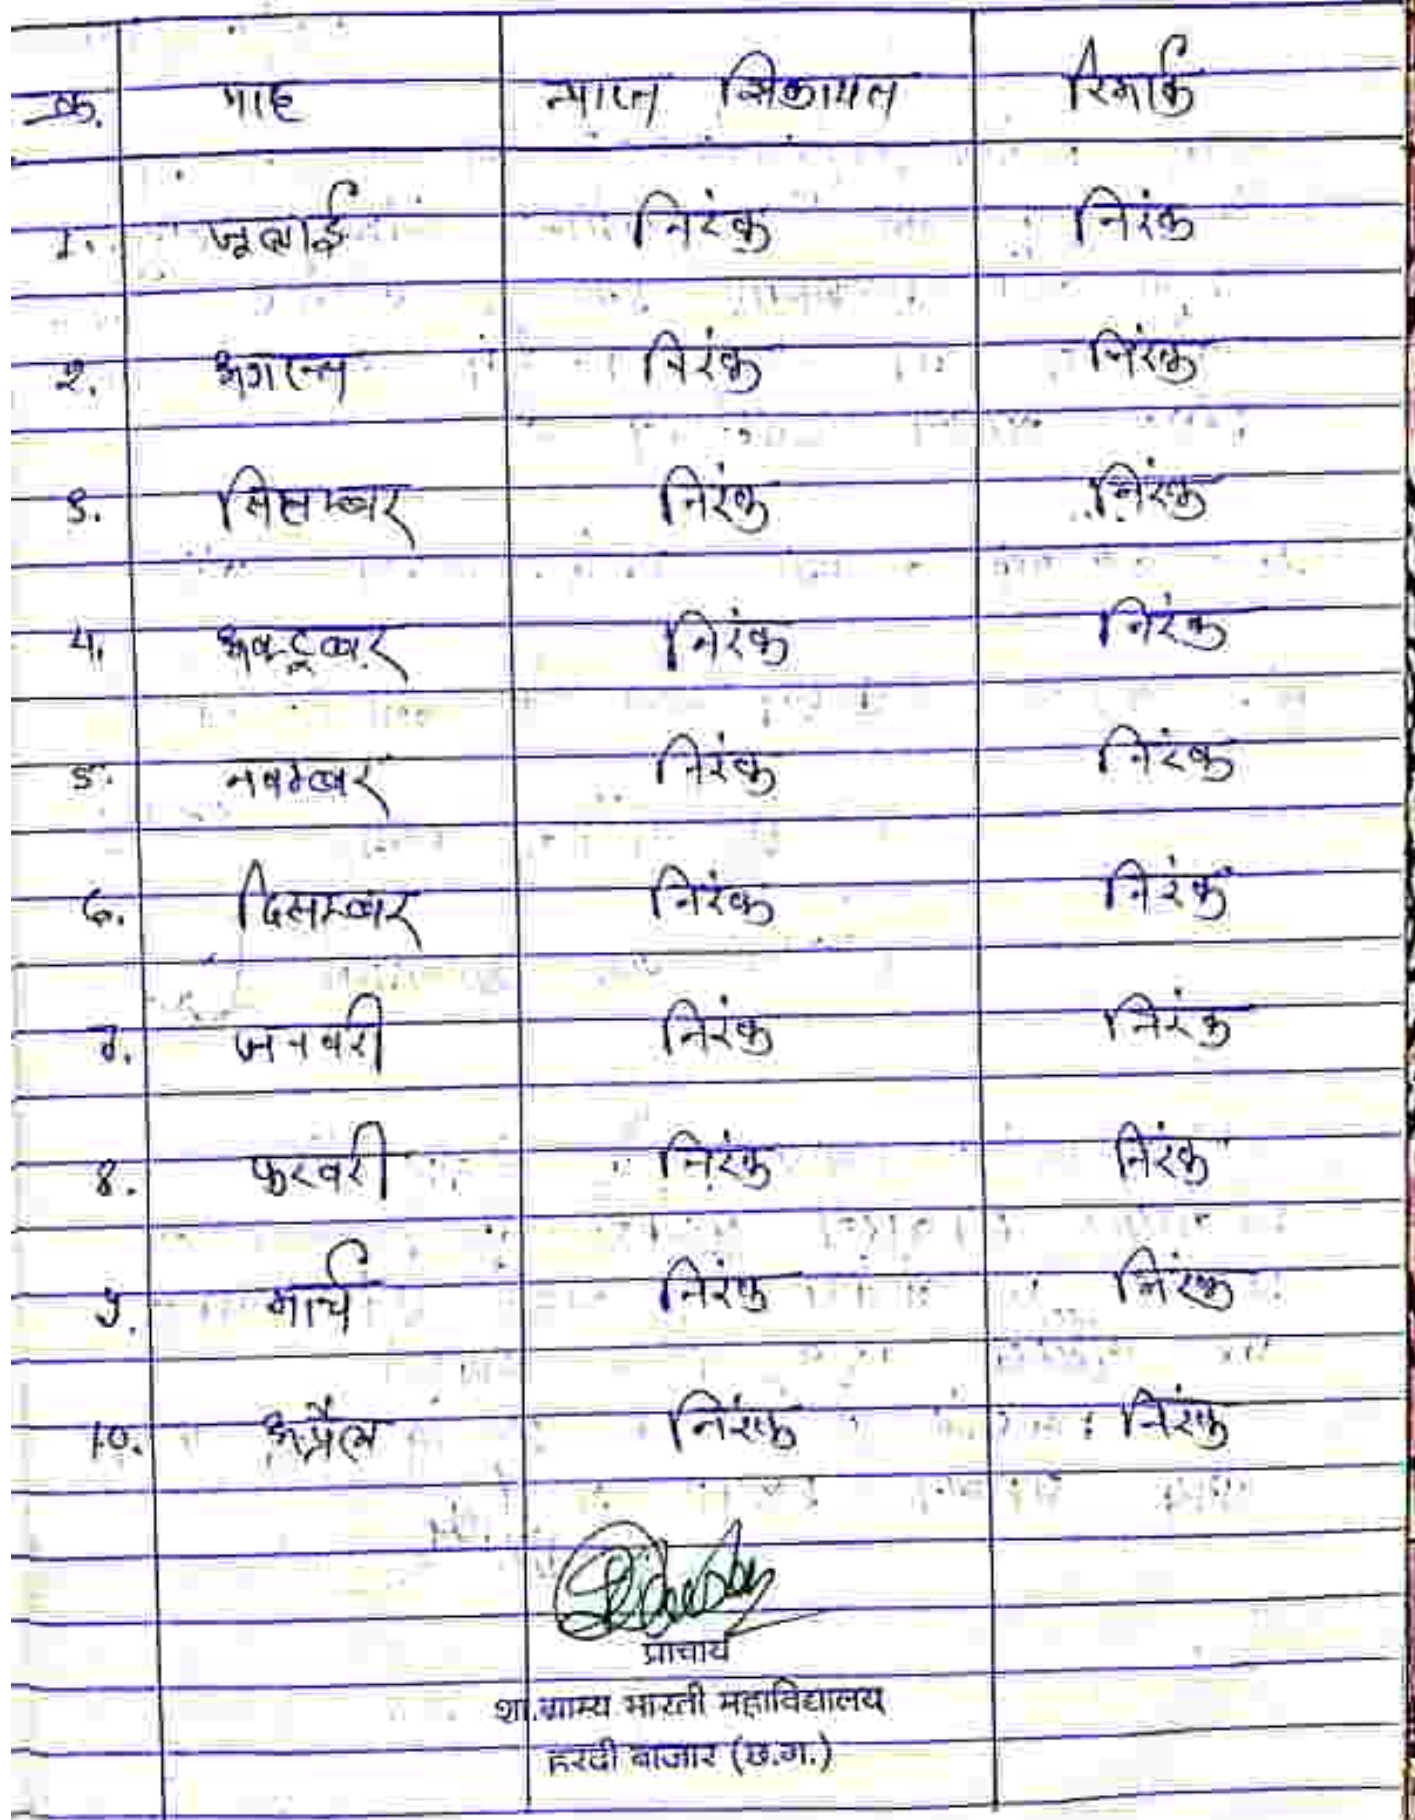 क्र. माह प्राप्त शिकायत रिमार्क
1. जूलाई निरंक निरंक
2. अगस्त निरंक निरंक
3. सितम्बर निरंक निरंक
4. अक्टूबर निरंक निरंक
5. नवम्बर निरंक निरंक
6. दिसम्बर निरंक निरंक
7. जनवरी निरंक निरंक
8. फरवरी निरंक निरंक
9. मार्च निरंक निरंक
10. अप्रैल निरंक निरंक
प्राचार्य
शा.ग्राम्य भारती महाविद्यालय
हरदी बाजार (छ.ग.)